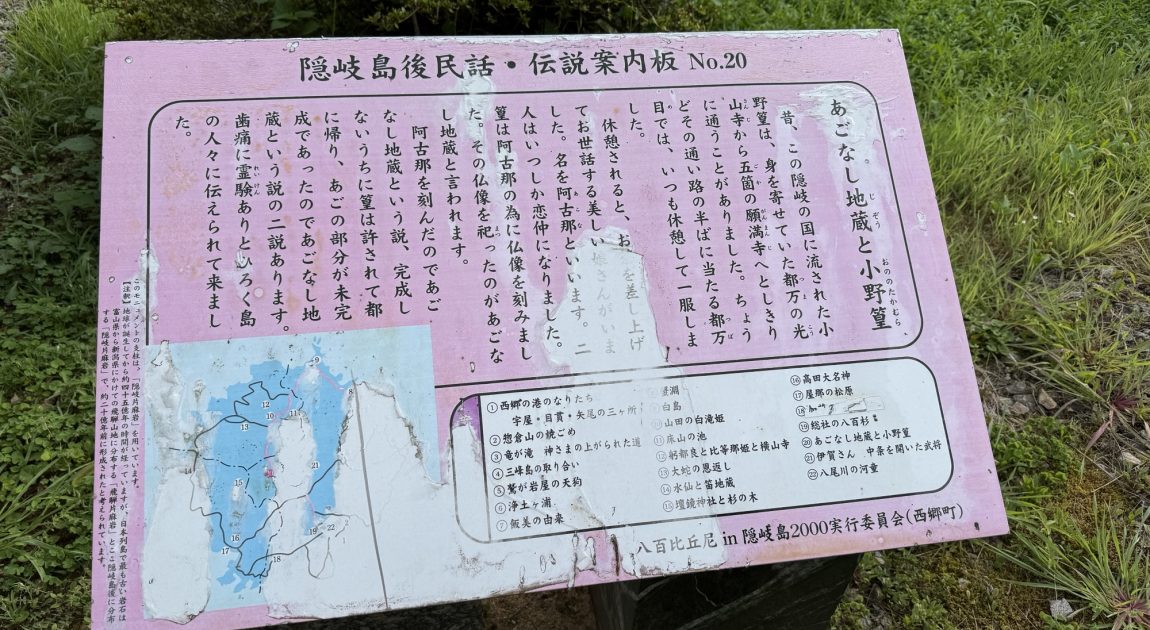 隠岐島後民話・伝説案内板 No.20
あごなし地蔵と小野篁
昔、この隠岐の国に流された小
野篁は、身を寄せていた都万の光
山寺から五箇の願満寺へとしきり
に通うことがありました。ちょう
どその通い路の半ばに当たる都万
目では、いつも休憩して一服しま
した。
休憩されると、お を差し上げ
てお世話する美しい娘さんがいま
した。名を阿古那といいます。二
人はいつしか恋仲になりました。
篁は阿古那の為に仏像を刻みまし
た。その仏像を祀ったのがあごな
し地蔵と言われます。
阿古那を刻んだのであご
なし地蔵という説、完成し
ないうちに篁は許されて都
に帰り、あごの部分が未完
成であったのであごなし地
蔵という説の二説あります。
歯痛に霊験ありとひろく島
の人々に伝えられて来まし
た。
①西郷の港のなりたち
宇屋・目貫・矢尾の三ヶ所
②惣倉山の焼ごめ
③竜が滝 神さまの上がられた道
④三峰島の取り合い
⑤鷲が岩屋の天狗
⑥浄土ヶ浦
⑦飯美の由来
白島
山田の白滝姫
⑪床山の池
⑫躬都良と比等那姫と横山寺
⑬大蛇の恩返し
⑭水仙と笛地蔵
⑮壇鏡神社と杉の木
⑯高田大名神
⑰屋那の松原
⑱
⑲総社の八百杉
⑳あごなし地蔵と小野篁
㉑伊賀さん 中条を開いた武将
㉒八尾川の河童
八百比丘尼 in 隠岐島2000実行委員会(西郷町)
このモニュメントの支柱は、「隠岐片麻岩」を用いています。
【注釈】地球が誕生してから約四十五億年の時間が経っていますが、日本列島で最も古い岩石は
富山県から新潟県にかけての飛騨山地に分布する「飛騨片麻岩」とここ隠岐島後に分布
する「隠岐片麻岩」で、約二十億年前に形成されたと考えられています。
9
12
10
11
13
21
15
19
22
16
17
18